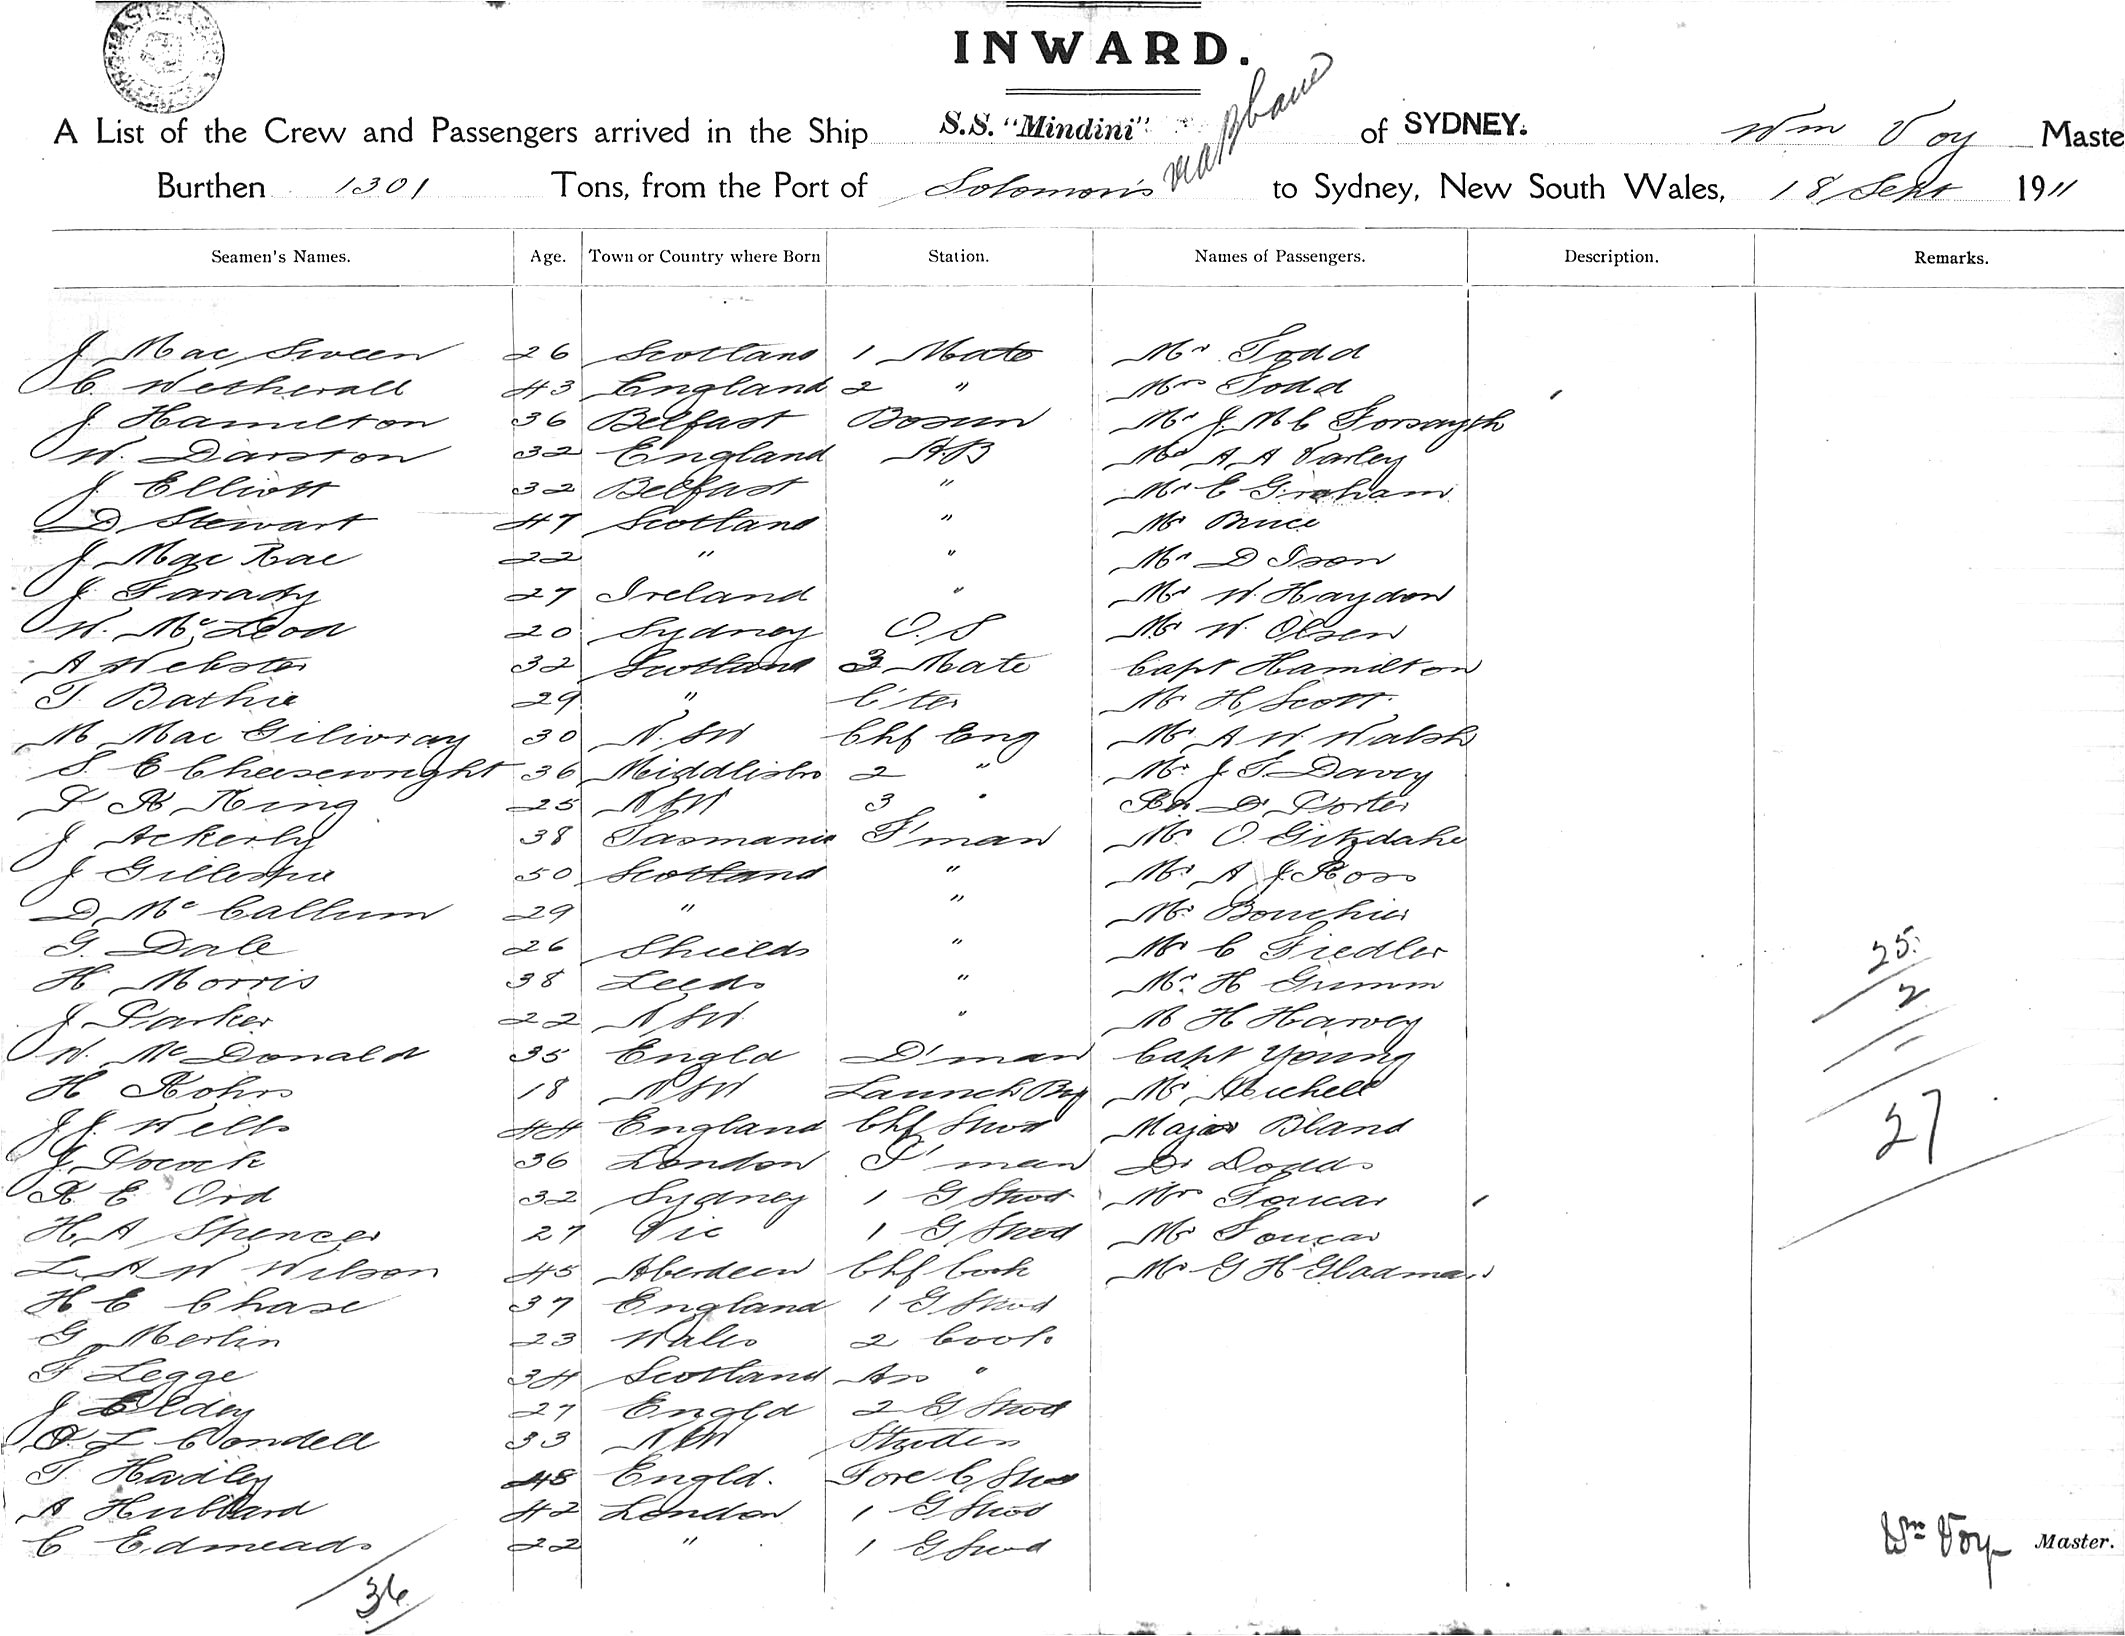 INWARD.
A List of the Crew and Passengers arrived in the Ship S.S. "Mindini" via Bbane of SYDNEY. Wm Voy Maste
Burthen 1301 Tons, from the Port of Solomons to Sydney, New South Wales, 18 Sept 1911
Seamen's Names. Age. Town or Country where Born Station. Names of Passengers. Description. Remarks.
J Mac Sween 26 Scotland 1 Mate Mr Todd
C. Wetherall 43 England 2 " Mrs Todd
J Hamilton 36 Belfast Bosun Mr J. M C Forsayth
W. Darston 32 England AB Mr A A Varley
J Elliott 32 Belfast " Mr C Graham
D Stewart 47 Scotland " Mr Bruce
J Mac Rae 22 " " Mr D Ison
J. Farady 27 Ireland " Mr W. Haydon
W. Mc Leod 20 Sydney O.S Mr W. Olsen
A Webster 32 Scotland 3 Mate Capt Hamilton
T. Bathie 29 " C'ter Mr H Scott
M Mac Gilivray 30 N.SW Chf Eng Mr A W. Walsh
S. E Cheesewright 36 Middlisbro 2 " Mr J T. Davey
R King 25 NSW 3 " D Porter
J Ackerly 38 Tasmania F'man Mr O.
J Gillespie 50 Scotland " Mr A J Ross
D Mc Callum 29 " " Mr Bouchier
G. Dale 26 Shields " Mr C Fiedler
H Morris 38 Leeds " Mr. H Grimm
J Parker 22 NSW " M H Harvey
W. Mc Donald 35 Engld D'man Capt Young
H Rohrs 18 NSW Launch Boy Mr
J J. Wells 44 England Chf Stwd Major Bland
J. Pocock 36 London P'man Dr Dodds
R E Ord 32 Sydney 1 G Stwd Mrs Foucar
H. A Spencer 27 Vic 1 G Stwd Mr Foucar
L A W Wilson 45 Aberdeen Chf Cook Mr G H Gladman
H E Chase 37 England 1 G Stwd
G Merlin 23 Wales 2 Cook
F Legge 34 Scotland Ass "
J Eldey 27 Engld 2 G Stwd
L Condell 33 NSW
T. Hadley 48 Engld. Fore C Stwd
A Hubbard 42 London 1 G Stwd
C Edmeads 22 " 1 G Stwd
36
25
2
27
Wm Voy Master.